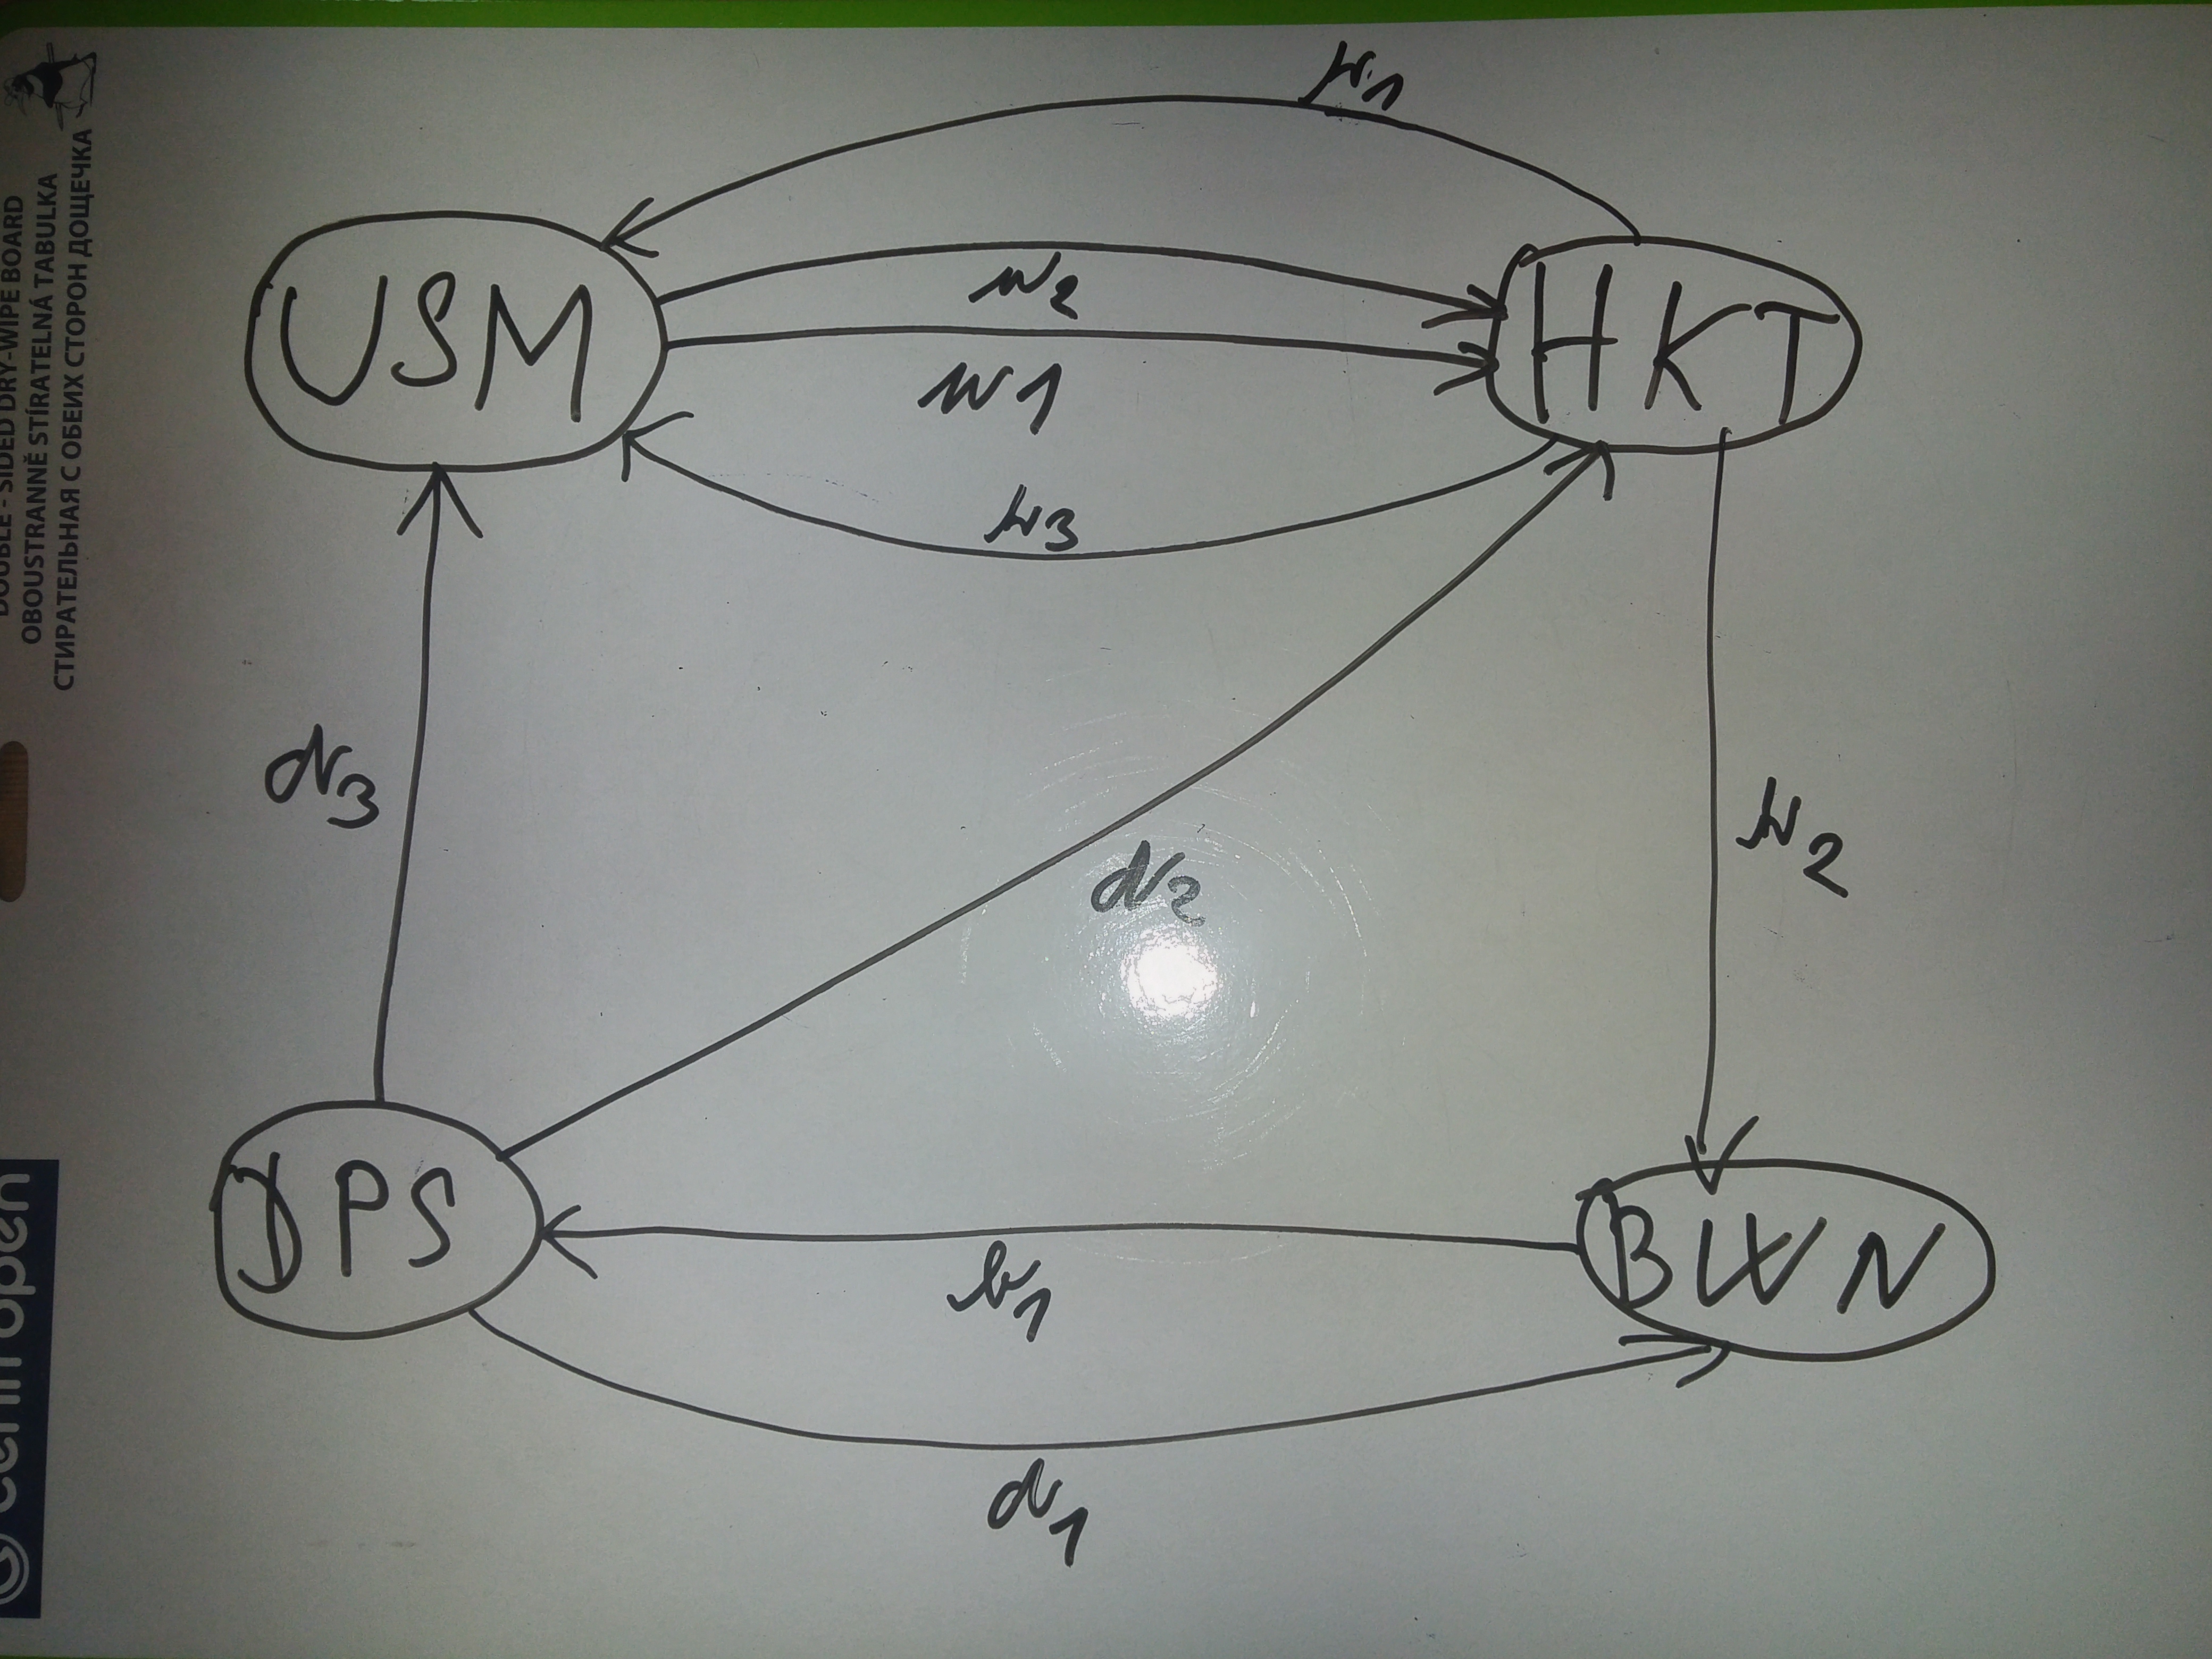 DOUBLE - SIDED DRY-WIPE BOARD
OBOUSTRANNĚ STÍRATELNÁ TABULKA
СТИРАТЕЛЬНАЯ С ОБЕИХ СТОРОН ДОЩЕЧКА
centropen
h1
USM
u2
HKT
u1
h3
d3
h2
d2
DPS
b1
BWN
d1